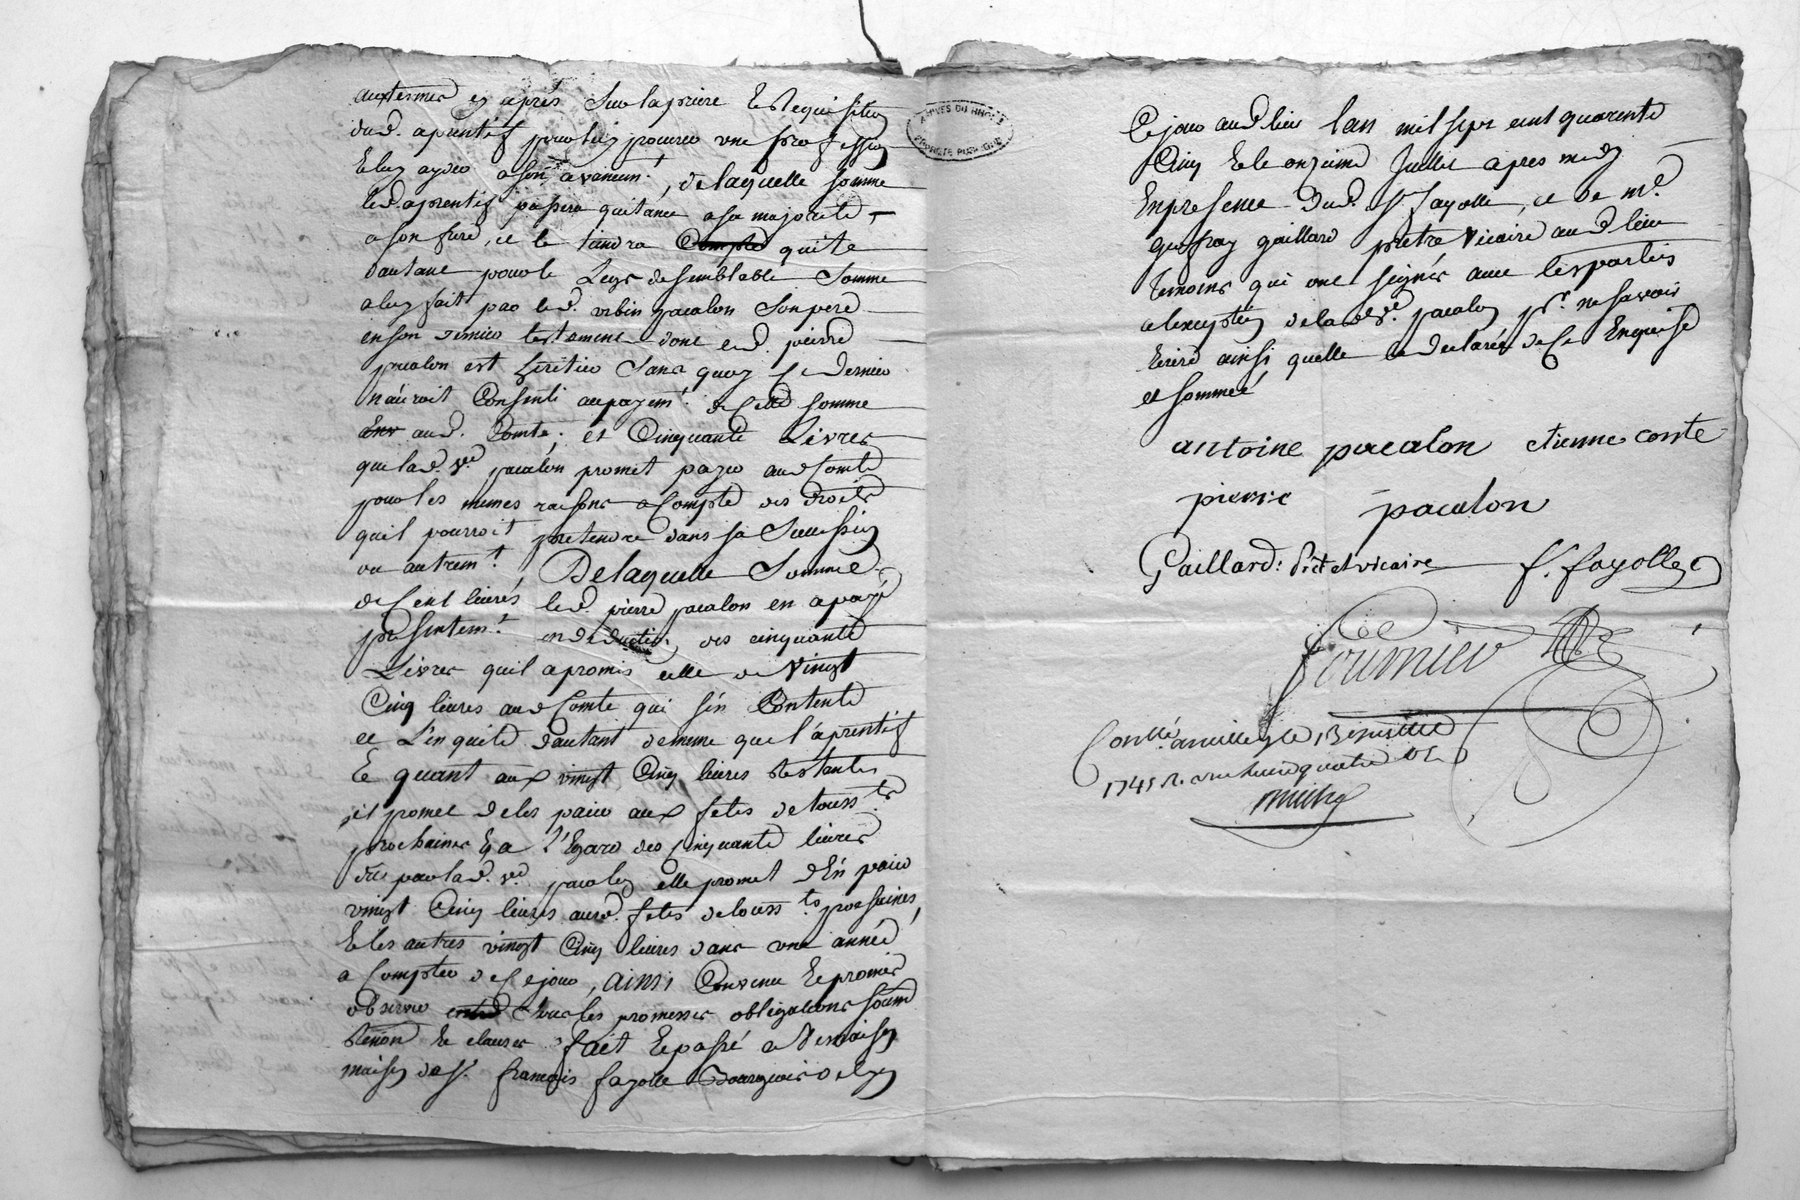 aux termes cy après sur la prière et requisition
dud. aprentif pour luy procurer une profession
et luy ayder a son avancem.t, de laquelle somme
led. aprentif passera quitance a sa majorité
a son frere, et le tiendra quitte
dautant pour le legs de semblable somme
a luy fait par led. urbin pacalon son pere
en son dernier testament dont led. pierre
pacalon est heritier sans quoy ce dernier
n'auroit consenti au payem.t de cette somme
aud. Comte; et Cinquante Livres
que lad. v.e pacalon promet payer aud Comte
pour les memes raisons a Compte des droits
quil pourroit pretendre dans sa succession
ou autrem.t De laquelle somme
de Cent livres led. pierre pacalon en a payé
presentem.t en deduction des cinquante
Livres quil a promis celle de vingt
Cinq livres aud Comte qui s'en contente
et l'en quitte dautant de meme que l'aprentif
Et quant aux vingt Cinq livres restantes
il promet de les paier aux fetes de touss.ts
prochaines Et a l'Egard des Cinquante livres
dûs par lad. v.e pacalon elle promet d'En paier
vingt Cinq livres auxd. fetes de touss.ts prochaines,
Et les autres vingt Cinq livres dans une année
a Compter de Ce jour, ainsi Convenu Et promis
observer sous les promesses obligations soum
renon Et clauses fait Et passé a Vernaison
maison de s.r françois fayolle Bourgeois de Lyon
Ce jour aud lieu lan mil sept cent quarente
Cinq Et le onzieme Juillet apres midy
En presence dud. s.r fayolle, et de m.e
geoffray gaillard pretre vicaire aud lieu
temoins qui ont signés avec les parties
a lexception de lad v.e pacalon p.r ne savoir
Ecrire ainsi quelle a declaré de Ce Enquise
et sommée
antoine pacalon etienne conte
pierre pacalon
Gaillard: Prêt et vicaire f. fayolle
fournier
Con.llé a millery le
1745 R. une livre quatre sols
ARCHIVES DU RHONE